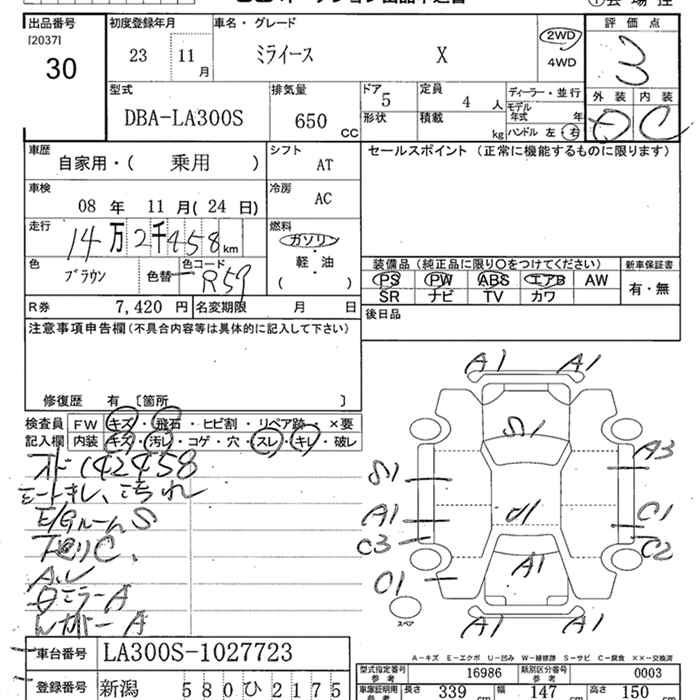 出品番号 初度登録年月 車名・グレード 評価点
[2037]
30 23 11月 ミライース X 2WD 4WD 3
型式 排気量 ドア 5 定員 4人 ディーラー・並行 外装 内装
DBA-LA300S 650 CC 形状 積載 kg モデル年式 年 D C
ハンドル 左・右
車歴 自家用・( 乗用 ) シフト AT セールスポイント (正常に機能するものに限ります)
車検 08年 11月(24日) 冷房 AC
走行 14万2千458km 燃料 ガソリン 軽・油 ( )
色 ブラウン 色替 色コード R59 装備品 (純正品に限り○をつけてください) 新車保証書
PS PW ABS エアB AW 有・無
SR ナビ TV カワ
R券 7,420円 名変期限 月 日 後日品
注意事項申告欄 (不具合内容等は具体的に記入して下さい)
修復歴 有 [箇所 ]
検査員 FW キズ・飛石・ヒビ割・リペア跡・×要
記入欄 内装 キズ・汚れ・コゲ・穴・スレ・キレ・破レ
142458
A1 A1
S1
S1 A3
A1 C1
C3 C2
A1
A1 A1
スペア
A-キズ E-エクボ U-凹み W-補修跡 S-サビ C-腐食 ××-交換済
車台番号 LA300S-1027723
型式指定番号 参考 16986 類別区分番号 参考 0003
登録番号 新潟 580 ひ 2175
車塚証明用 参考 長さ 339 cm 幅 147 cm 高さ 150 cm